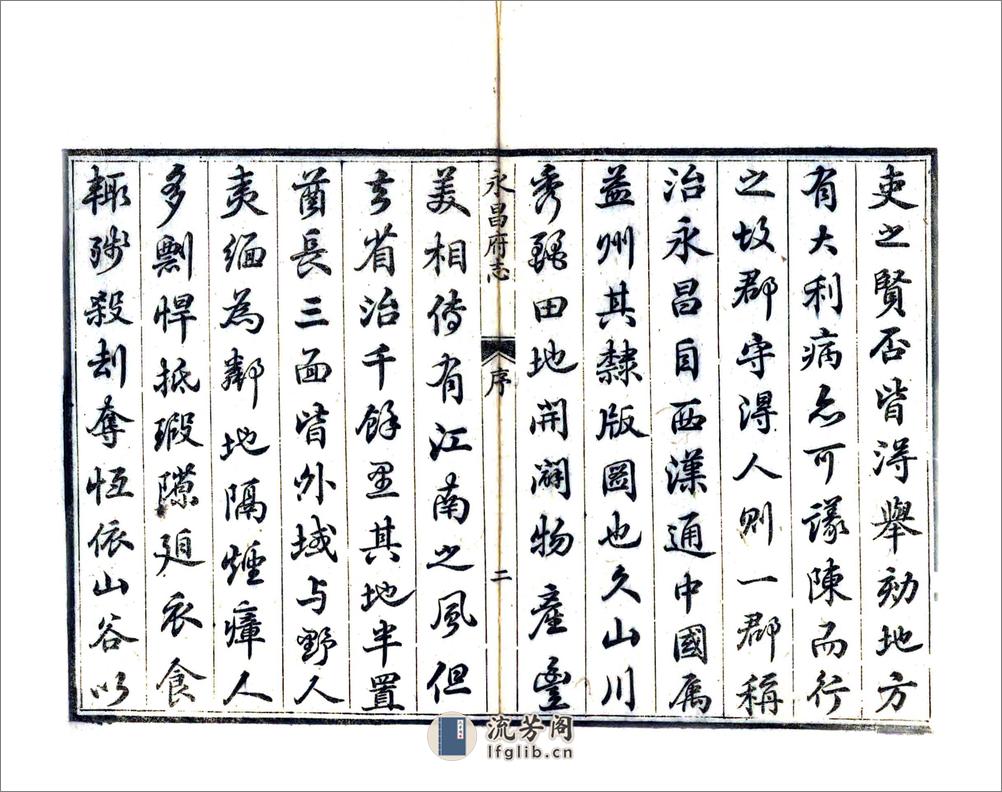 吏之賢否皆得舉劾地方
有大利病亦可議陳而行
之故郡守得人則一郡稱
治永昌自西漢通中國屬
益州其隸版圖也久山川
秀麗田地開闢物產豐
永昌府志 序 二
美相傳有江南之風但
去省治千餘里其地半置
酋長三面皆外域与野人
夷緬為鄰地隔煙瘴人
多剽悍抵瑕隙廹衣食
輒殘殺刦奪恆依山谷以
流芳阁
lfglib.cn